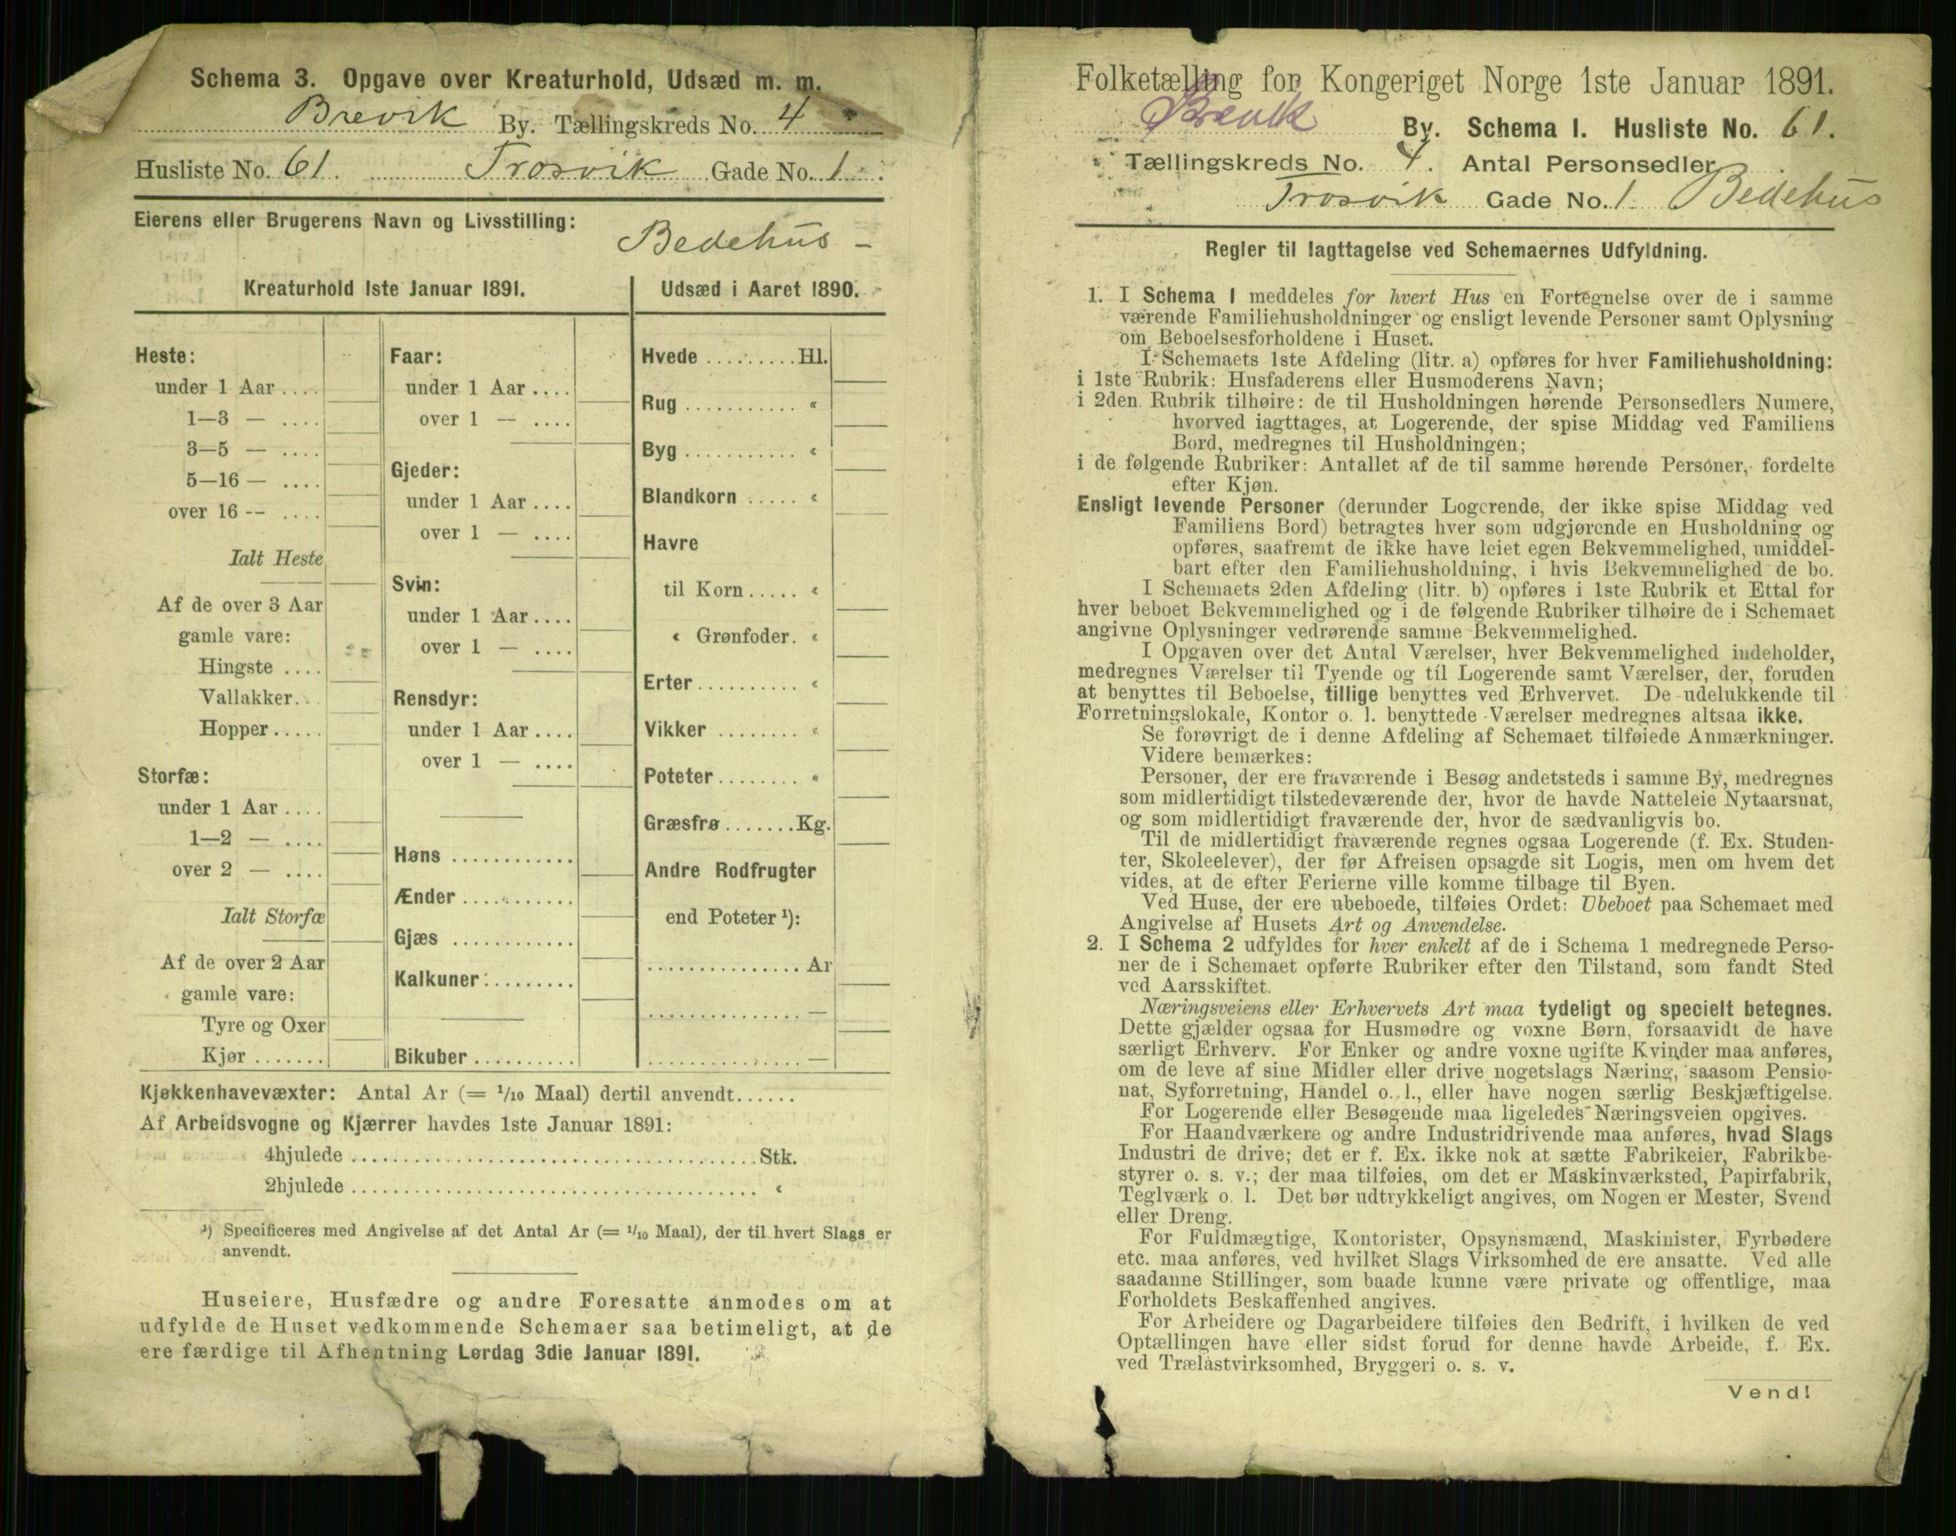 Schema 3. Opgave over Kreaturhold, Udsæd m. m.
Brevik By. Tællingskreds No. 4
Husliste No. 61. Trosvik Gade No. 1.
Eierens eller Brugerens Navn og Livsstilling:
Bedehus -
Kreaturhold 1ste Januar 1891.
Heste:
under 1 Aar ....
1—3 — ....
3—5 — ....
5—16 — ....
over 16 -- ....
Ialt Heste
Af de over 3 Aar
gamle vare:
Hingste ....
Vallakker...
Hopper.....
Storfæ:
under 1 Aar ....
1—2 — ....
over 2 — ....
Ialt Storfæ
Af de over 2 Aar
gamle vare:
Tyre og Oxer
Kjør .......
Faar:
under 1 Aar ....
over 1 — ....
Gjeder:
under 1 Aar ....
over 1 — ....
Svin:
under 1 Aar ....
over 1 — ....
Rensdyr:
under 1 Aar ....
over 1 — ....
Høns ............
Ænder ...........
Gjæs ............
Kalkuner.........
Bikuber ..........
Udsæd i Aaret 1890.
Hvede .........Hl.
Rug ........... «
Byg ........... «
Blandkorn ..... «
Havre
til Korn..... «
« Grønfoder. «
Erter.......... «
Vikker ........ «
Poteter........ «
Græsfrø.......Kg.
Andre Rodfrugter
end Poteter ¹):
............... Ar
...............—
...............—
Kjøkkenhavevæxter: Antal Ar (= 1/10 Maal) dertil anvendt......
Af Arbeidsvogne og Kjærrer havdes 1ste Januar 1891:
4hjulede ........................................Stk.
2hjulede ........................................ «
¹) Specificeres med Angivelse af det Antal Ar (= 1/10 Maal), der til hvert Slags er
anvendt.
Huseiere, Husfædre og andre Foresatte anmodes om at
udfylde de Huset vedkommende Schemaer saa betimeligt, at de
ere færdige til Afhentning Lørdag 3die Januar 1891.
Folketælling for Kongeriget Norge 1ste Januar 1891.
Brevik By. Schema I. Husliste No. 61.
Tællingskreds No. 4. Antal Personsedler
Trosvik Gade No. 1. Bedehus
Regler til Iagttagelse ved Schemaernes Udfyldning.
1. I Schema 1 meddeles for hvert Hus en Fortegnelse over de i samme
værende Familiehusholdninger og ensligt levende Personer samt Oplysning
om Beboelsesforholdene i Huset.
I Schemaets 1ste Afdeling (litr. a) opføres for hver Familiehusholdning:
i 1ste Rubrik: Husfaderens eller Husmoderens Navn;
i 2den Rubrik tilhøire: de til Husholdningen hørende Personsedlers Numere,
hvorved iagttages, at Logerende, der spise Middag ved Familiens
Bord, medregnes til Husholdningen;
i de følgende Rubriker: Antallet af de til samme hørende Personer, fordelte
efter Kjøn.
Ensligt levende Personer (derunder Logerende, der ikke spise Middag ved
Familiens Bord) betragtes hver som udgjørende en Husholdning og
opføres, saafremt de ikke have leiet egen Bekvemmelighed, umiddel-
bart efter den Familiehusholdning, i hvis Bekvemmelighed de bo.
I Schemaets 2den Afdeling (litr. b) opføres i 1ste Rubrik et Ettal for
hver beboet Bekvemmelighed og i de følgende Rubriker tilhøire de i Schemaet
angivne Oplysninger vedrørende samme Bekvemmelighed.
I Opgaven over det Antal Værelser, hver Bekvemmelighed indeholder,
medregnes Værelser til Tyende og til Logerende samt Værelser, der, foruden
at benyttes til Beboelse, tillige benyttes ved Erhvervet. De udelukkende til
Forretningslokale, Kontor o. l. benyttede Værelser medregnes altsaa ikke.
Se forøvrigt de i denne Afdeling af Schemaet tilføiede Anmærkninger.
Videre bemærkes:
Personer, der ere fraværende i Besøg andetsteds i samme By, medregnes
som midlertidigt tilstedeværende der, hvor de havde Natteleie Nytaarsnat,
og som midlertidigt fraværende der, hvor de sædvanligvis bo.
Til de midlertidigt fraværende regnes ogsaa Logerende (f. Ex. Studen-
ter, Skoleelever), der før Afreisen opsagde sit Logis, men om hvem det
vides, at de efter Ferierne ville komme tilbage til Byen.
Ved Huse, der ere ubeboede, tilføies Ordet: Ubeboet paa Schemaet med
Angivelse af Husets Art og Anvendelse.
2. I Schema 2 udfyldes for hver enkelt af de i Schema 1 medregnede Perso-
ner de i Schemaet opførte Rubriker efter den Tilstand, som fandt Sted
ved Aarsskiftet.
Næringsveiens eller Erhvervets Art maa tydeligt og specielt betegnes.
Dette gjælder ogsaa for Husmødre og voxne Børn, forsaavidt de have
særligt Erhverv. For Enker og andre voxne ugifte Kvinder maa anføres,
om de leve af sine Midler eller drive nogetslags Næring, saasom Pensio-
nat, Syforretning, Handel o. l., eller have nogen særlig Beskjæftigelse.
For Logerende eller Besøgende maa ligeledes Næringsveien opgives.
For Haandværkere og andre Industridrivende maa anføres, hvad Slags
Industri de drive; det er f. Ex. ikke nok at sætte Fabrikeier, Fabrikbe-
styrer o. s. v.; der maa tilføies, om det er Maskinværksted, Papirfabrik,
Teglværk o. l. Det bør udtrykkeligt angives, om Nogen er Mester, Svend
eller Dreng.
For Fuldmægtige, Kontorister, Opsynsmænd, Maskinister, Fyrbødere
etc. maa anføres, ved hvilket Slags Virksomhed de ere ansatte. Ved alle
saadanne Stillinger, som baade kunne være private og offentlige, maa
Forholdets Beskaffenhed angives.
For Arbeidere og Dagarbeidere tilføies den Bedrift, i hvilken de ved
Optællingen have eller sidst forud for denne havde Arbeide, f. Ex.
ved Trælastvirksomhed, Bryggeri o. s. v.
Vend!